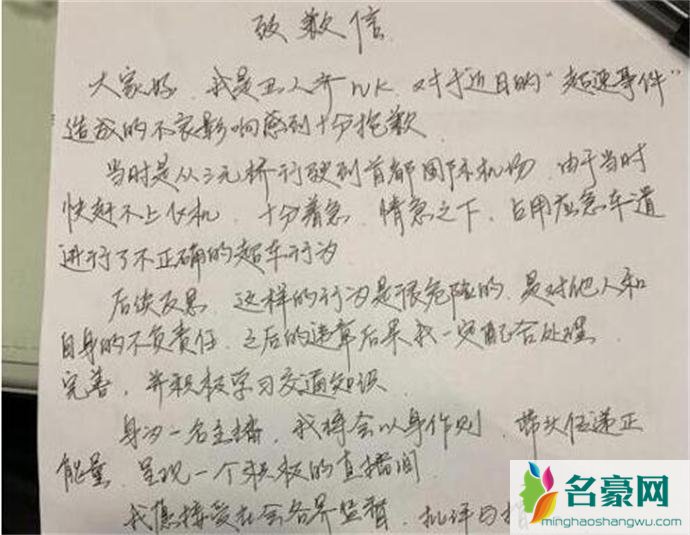 致歉信
大家好,我是丑人齐nk,对于近日的“超速事件”
造成的不良影响感到十分抱歉
当时是从三元桥行驶到首都国际机场,由于当时
快赶不上飞机,十分着急,情急之下,占用应急车道
进行了不正确的超车行为
后续反思,这样的行为是很危险的,是对他人和
自身的不负责任,之后的违章后果我一定配合处理
完善,并积极学习交通知识
身为一名主播,我将会以身作则,带头传递正
能量,呈现一个积极的直播间
我愿接受社会各界监督,批评与
名豪网
minghaoshangwu.com